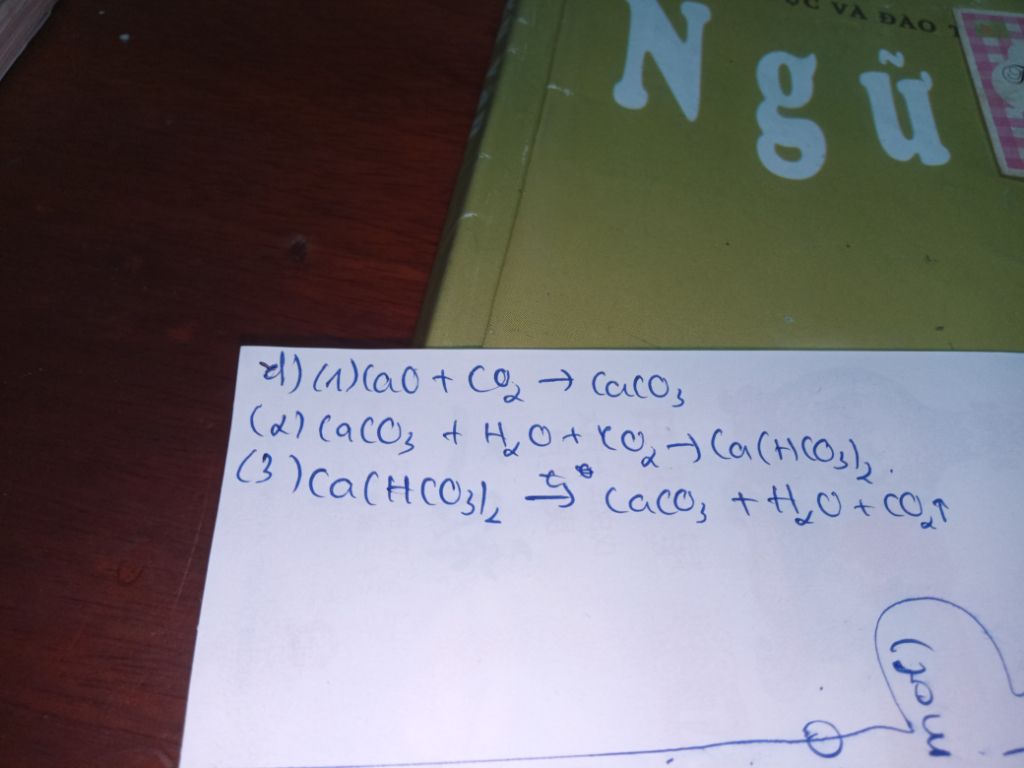 ỤC VÀ ĐÀO T
Ngữ
d) (1) CaO + CO₂ → CaCO₃
(2) CaCO₃ + H₂O + CO₂ → Ca(HCO₃)₂.
(3) Ca(HCO₃)₂ t° → CaCO₃ + H₂O + CO₂↑